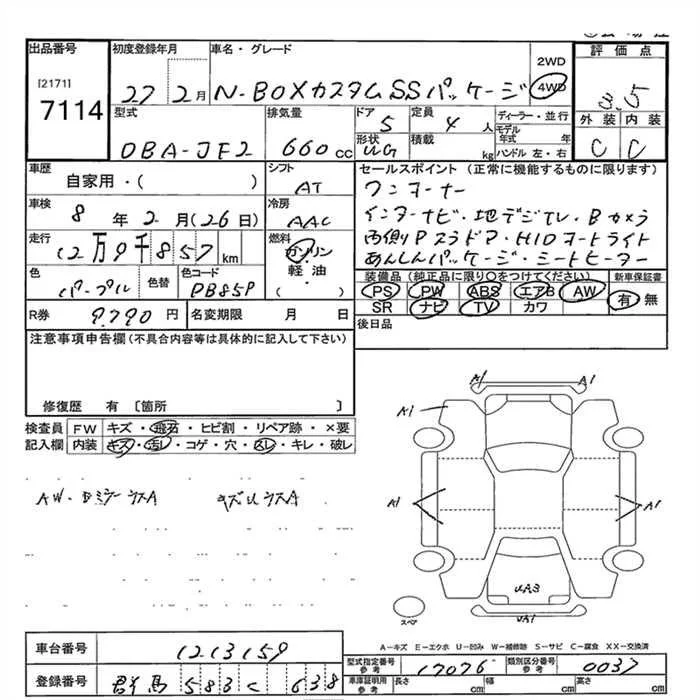 出品番号 初度登録年月 車名・グレード 評価点
[2171] 2WD
7114 27 2月 N-BOXカスタムSSパッケージ 4WD 3.5
型式 排気量 ドア 定員 ディーラー・並行 外装 内装
DBA-JF2 660cc 5 4人 モデル年式 年
形状 積載 ハンドル 左・右 C C
UG kg
車歴 シフト セールスポイント (正常に機能するものに限ります)
自家用・( ) AT ワンオーナー
車検 冷房 インターナビ・地デジTV・Bカメラ
8年2月(26日) AAC 両側Pスラドア・HIDオートライト
走行 燃料 あんしんパッケージ・シートヒーター
12万9千857km ガソリン
軽・油
( )
色 色替 色コード 装備品 (純正品に限り○をつけてください) 新車保証書
パープル PB85P PS PW ABS エアB AW 有 無
SR ナビ TV カワ
R券 9,790円 名変期限 月 日 後日品
注意事項申告欄 (不具合内容等は具体的に記入して下さい)
修復歴 有 〔箇所 〕
検査員 FW キズ・飛石・ヒビ割・リペア跡・×要
記入欄 内装 キズ・汚レ・コゲ・穴・スレ・キレ・破レ
A1 A1
A1
A1 A1
UA3
UA1
スペア
A-キズ E-エクボ U-凹み W-補修跡 S-サビ C-腐食 XX-交換済
車台番号 1213159
型式指定番号 参考 17076 類別区分番号 参考 0037
登録番号 群馬 583 く 638
車庫証明用 参考 長さ cm 幅 cm 高さ cm